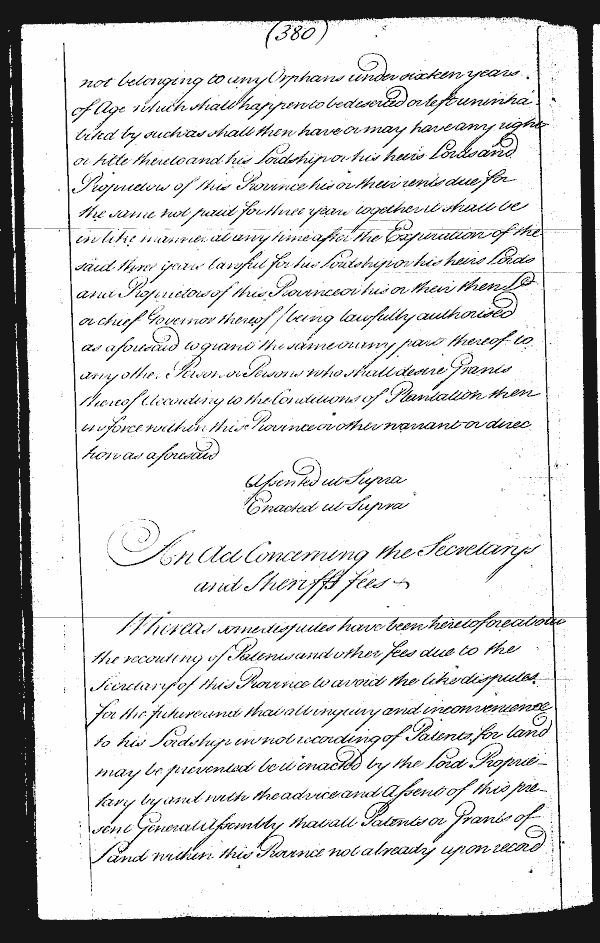 (380)
not belonging to any Orphans under sixteen years
of Age which shall happen to be deserted or left uninha-
bited by such as shall then have or may have any right
or title thereto and his Lordship or his heirs Lords and
Proprietors of this Province his or their rents due for
the same not paid for three years together it shall be
in like manner at any time after the Expiration of the
said three years lawful for his Lordship or his heirs Lords
and Proprietors of this Province or his or their then Lt
or chief Governor thereof / being lawfully authorised
as aforesaid to grant the same or any part thereof to
any other Person or Persons who shall desire Grants
thereof according to the Conditions of Plantation then
in force within this Province or other warrant or direc
tion as aforesaid
Assented ut Supra
Enacted ut Supra
An Act Concerning the Secretarys
and Sheriffs fees
Whereas some disputes have been heretofore about
the recording of Patents and other fees due to the
Secretary of this Province to avoid the like disputes
for the future and that all injury and inconvenience
to his Lordship in not recording of Patents for land
may be prevented be it enacted by the Lord Proprie-
tary by and with the advice and Assent of this pre-
sent General Assembly that all Patents or Grants of
Land within this Province not already upon record